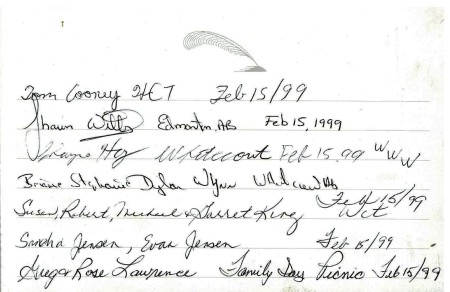 Tom Cooney WCT Feb 15/99
Shawn Willts Edmonton, AB Feb 15, 1999
Whitecourt Feb 15, 99 WWW
Stephanie Dylan Wynn
Susan, Robert, Michael & Garret King Feb 15/99 WCT
Sandra Jensen, Evan Jensen Feb 15/99
Rose Lawrence Family Day Picnic Feb 15/99